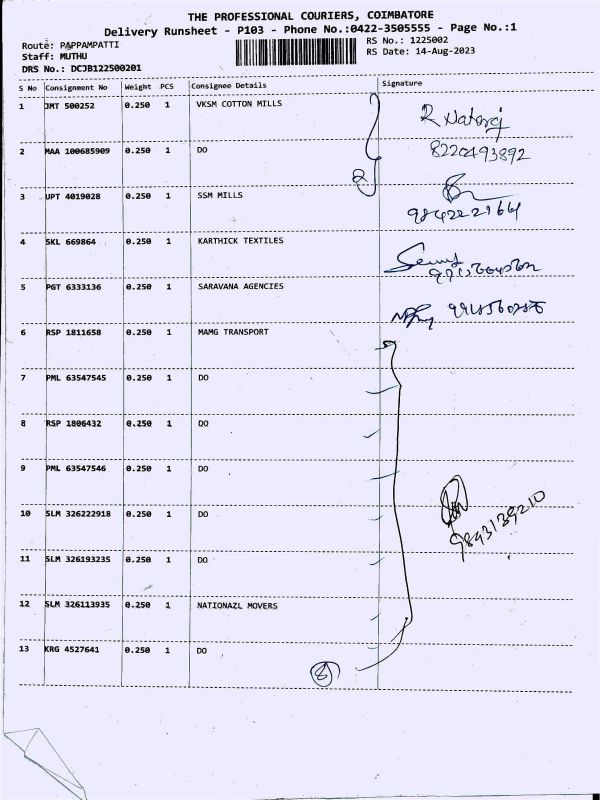 THE PROFESSIONAL COURIERS, COIMBATORE
Delivery Runsheet - P103 - Phone No.:0422-3505555 - Page No.:1
Route: PAPPAMPATTI RS No.: 1225002
Staff: MUTHU RS Date: 14-Aug-2023
DRS No.: DCJB122500201
S No Consignment No Weight PCS Consignee Details Signature
1 JMT 500252 0.250 1 VKSM COTTON MILLS
R Nataraj
2 MAA 100685909 0.250 1 DO 8220493892
2
3 UPT 4019028 0.250 1 SSM MILLS
9842221664
4 SKL 669864 0.250 1 KARTHICK TEXTILES
5 PGT 6333136 0.250 1 SARAVANA AGENCIES
6 RSP 1811658 0.250 1 MAMG TRANSPORT
7 PML 63547545 0.250 1 DO
8 RSP 1806432 0.250 1 DO
9 PML 63547546 0.250 1 DO
10 SLM 326222918 0.250 1 DO
9843139210
11 SLM 326193235 0.250 1 DO
12 SLM 326113935 0.250 1 NATIONAZL MOVERS
13 KRG 4527641 0.250 1 DO
8